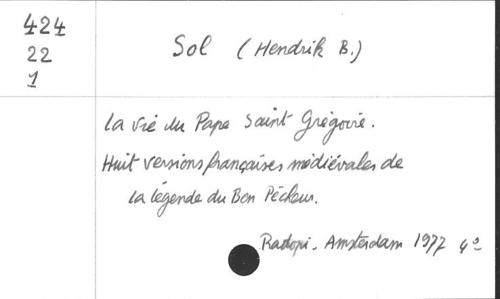 424
22
1
Sol (Hendrik B.)
La vie du Pape Saint Grégoire.
Huit versions françaises médiévales de
la légende du Bon Pécheur.
Rodopi. Amsterdam 1977 4º